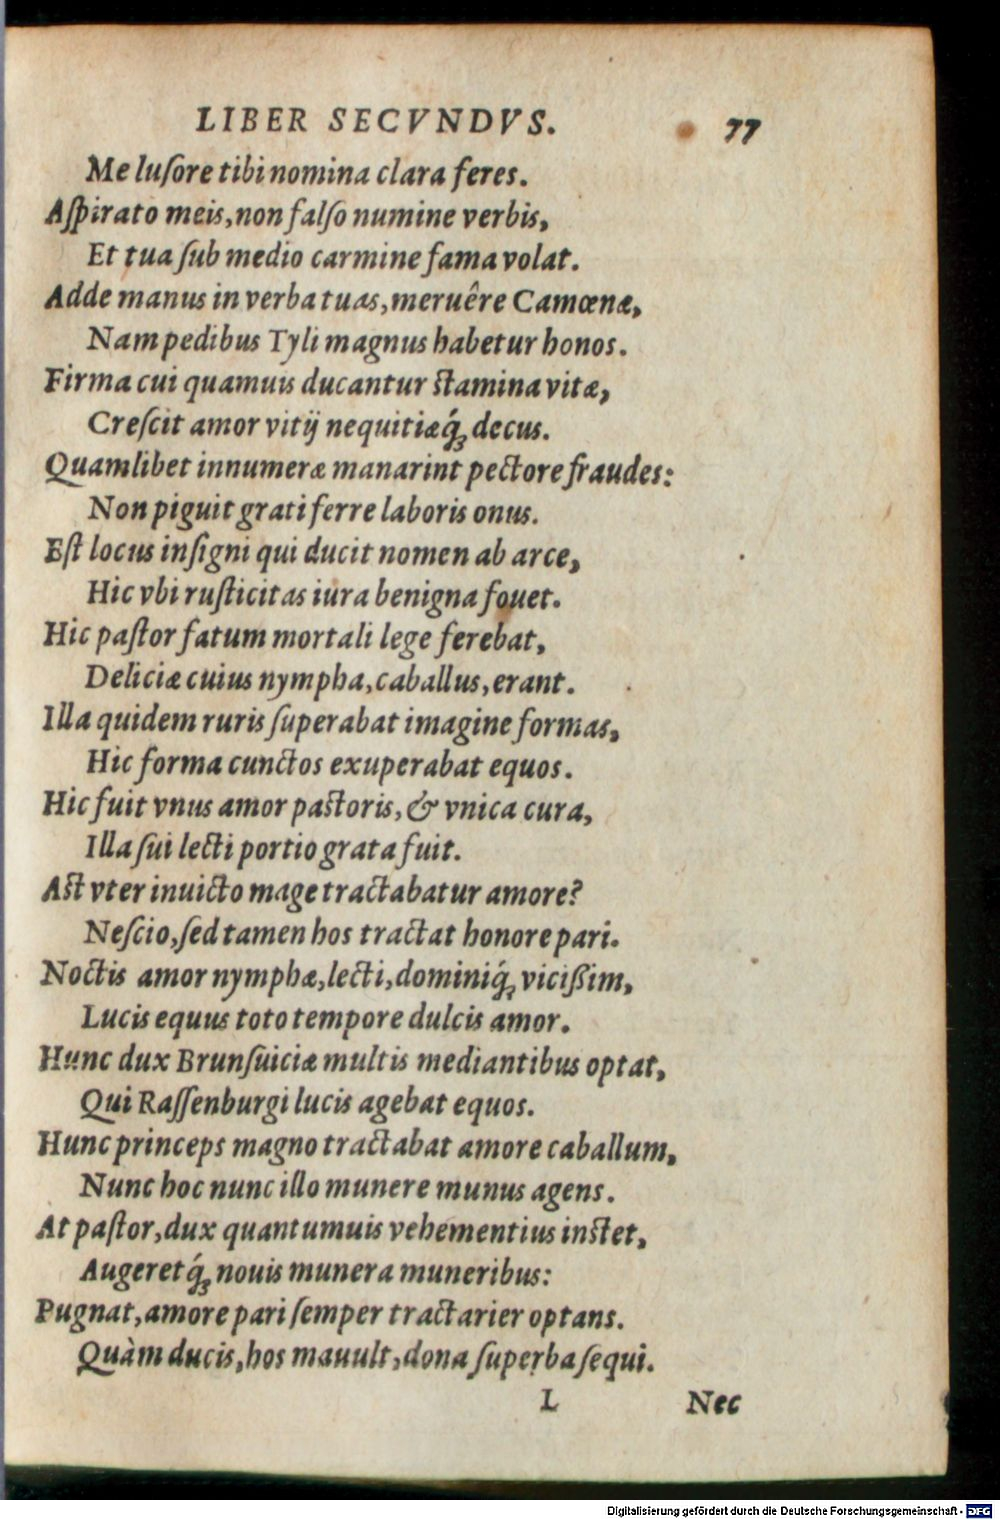 LIBER SECVNDVS. 77
Me luſore tibi nomina clara feres.
Aſpirato meis, non falſo numine verbis,
Et tua ſub medio carmine fama volat.
Adde manus in verba tuas, meruêre Camœnæ,
Nam pedibus Tyli magnus habetur honos.
Firma cui quamuis ducantur ſtamina vitæ,
Creſcit amor vitij nequitiæq́; decus.
Quamlibet innumeræ manarint pectore fraudes:
Non piguit grati ferre laboris onus.
Eſt locus inſigni qui ducit nomen ab arce,
Hic vbi ruſticitas iura benigna fouet.
Hic paſtor fatum mortali lege ferebat,
Deliciæ cuius nympha, caballus, erant.
Illa quidem ruris ſuperabat imagine formas,
Hic forma cunctos exuperabat equos.
Hic fuit vnus amor paſtoris, & vnica cura,
Illa ſui lecti portio grata fuit.
Aſt vter inuicto mage tractabatur amore?
Neſcio, ſed tamen hos tractat honore pari.
Noctis amor nymphæ, lecti, dominiq́; vicißim,
Lucis equus toto tempore dulcis amor.
Hunc dux Brunſuiciæ multis mediantibus optat,
Qui Raſſenburgi lucis agebat equos.
Hunc princeps magno tractabat amore caballum,
Nunc hoc nunc illo munere munus agens.
At paſtor, dux quantumuis vehementius inſtet,
Augeretq́; nouis munera muneribus:
Pugnat, amore pari ſemper tractarier optans.
Quàm ducis, hos mauult, dona ſuperba ſequi.
L Nec
Digitalisierung gefördert durch die Deutsche Forschungsgemeinschaft - DFG